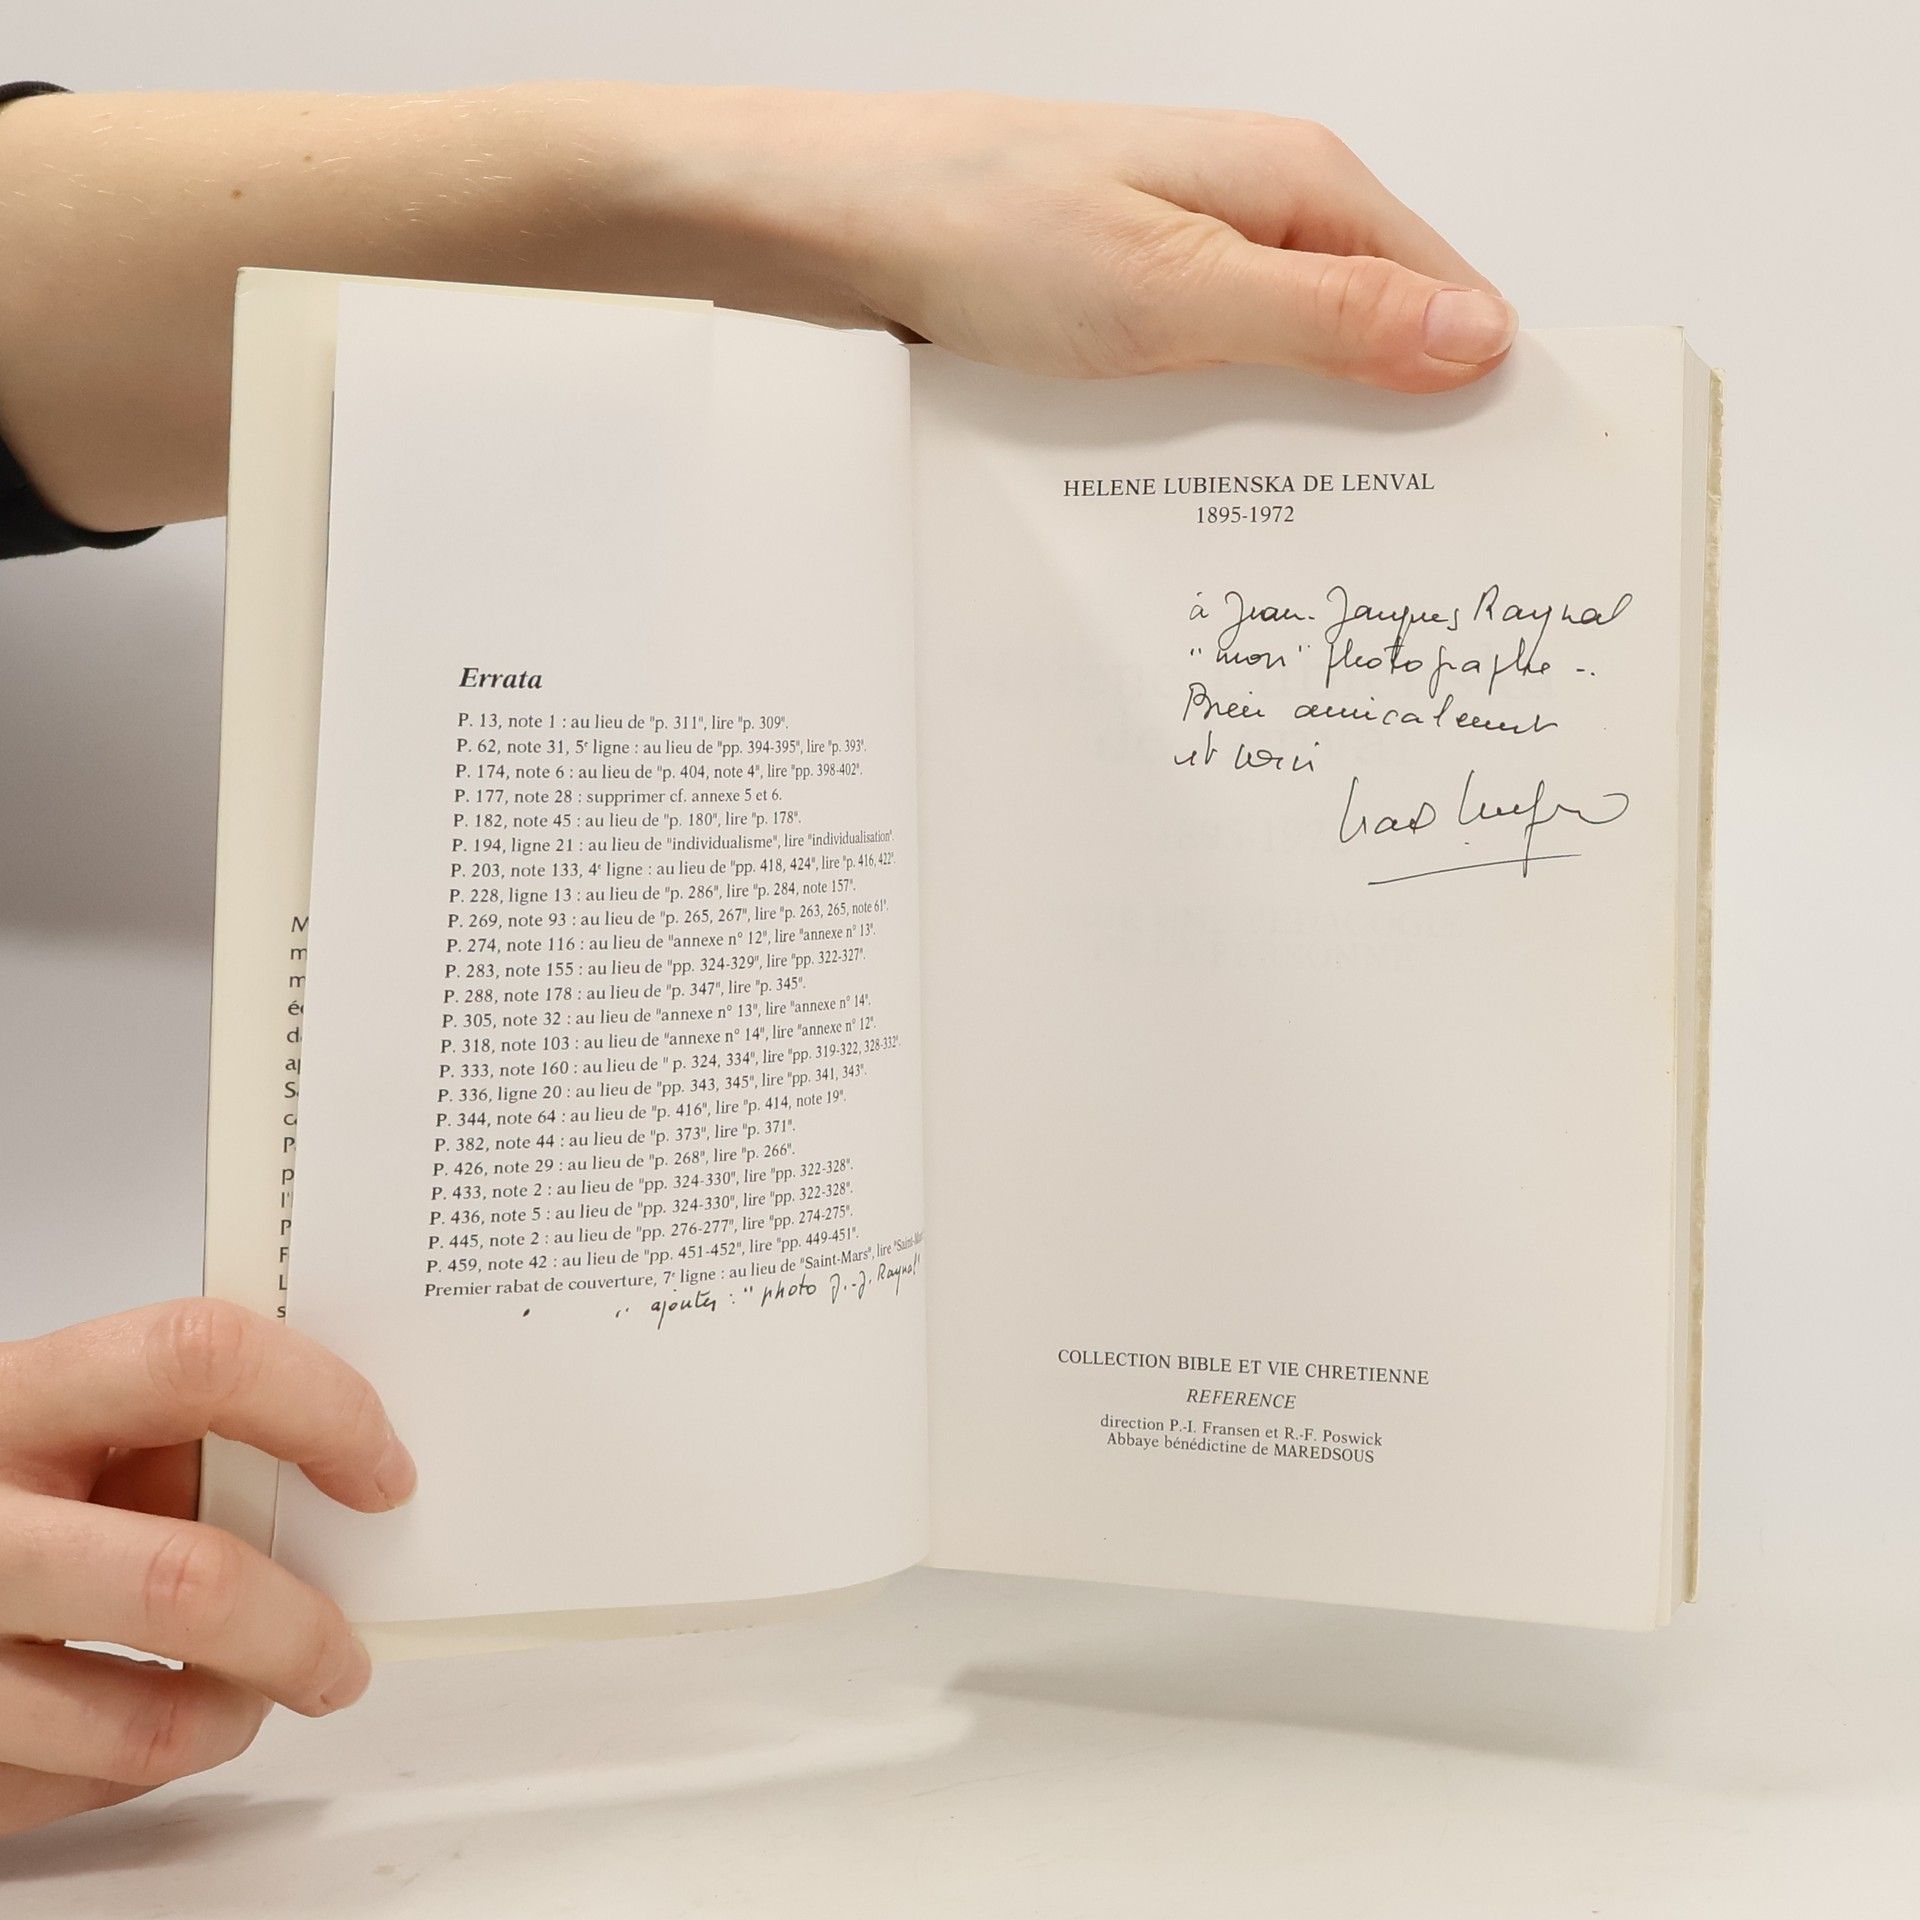 Errata
P. 13, note 1 : au lieu de "p. 311", lire "p. 309".
P. 62, note 31, 5e ligne : au lieu de "pp. 394-395", lire "p. 393".
P. 174, note 6 : au lieu de "p. 404, note 4", lire "pp. 398-402".
P. 177, note 28 : supprimer cf. annexe 5 et 6.
P. 182, note 45 : au lieu de "p. 180", lire "p. 178".
P. 194, ligne 21 : au lieu de "individualisme", lire "individualisation".
P. 203, note 133, 4e ligne : au lieu de "pp. 418, 424", lire "p. 416, 422".
P. 228, ligne 13 : au lieu de "p. 286", lire "p. 284, note 157".
P. 269, note 93 : au lieu de "p. 265, 267", lire "p. 263, 265, note 61".
P. 274, note 116 : au lieu de "annexe n° 12", lire "annexe n° 13".
P. 283, note 155 : au lieu de "pp. 324-329", lire "pp. 322-327".
P. 288, note 178 : au lieu de "p. 347", lire "p. 345".
P. 305, note 32 : au lieu de "annexe n° 13", lire "annexe n° 14".
P. 318, note 103 : au lieu de "annexe n° 14", lire "annexe n° 12".
P. 333, note 160 : au lieu de " p. 324, 334", lire "pp. 319-322, 328-332".
P. 336, ligne 20 : au lieu de "pp. 343, 345", lire "pp. 341, 343".
P. 344, note 64 : au lieu de "p. 416", lire "p. 414, note 19".
P. 382, note 44 : au lieu de "p. 373", lire "p. 371".
P. 426, note 29 : au lieu de "p. 268", lire "p. 266".
P. 433, note 2 : au lieu de "pp. 324-330", lire "pp. 322-328".
P. 436, note 5 : au lieu de "pp. 324-330", lire "pp. 322-328".
P. 445, note 2 : au lieu de "pp. 276-277", lire "pp. 274-275".
P. 459, note 42 : au lieu de "pp. 451-452", lire "pp. 449-451".
Premier rabat de couverture, 7e ligne : au lieu de "Saint-Mars", lire
" ajouter : "photo J.-J. Raynal"
HELENE LUBIENSKA DE LENVAL
1895-1972
à Jean-Jacques Raynal
"mon" photographe -.
Bien amicalement
et
COLLECTION BIBLE ET VIE CHRETIENNE
REFERENCE
direction P.-I. Fransen et R.-F. Poswick
Abbaye bénédictine de MAREDSOUS